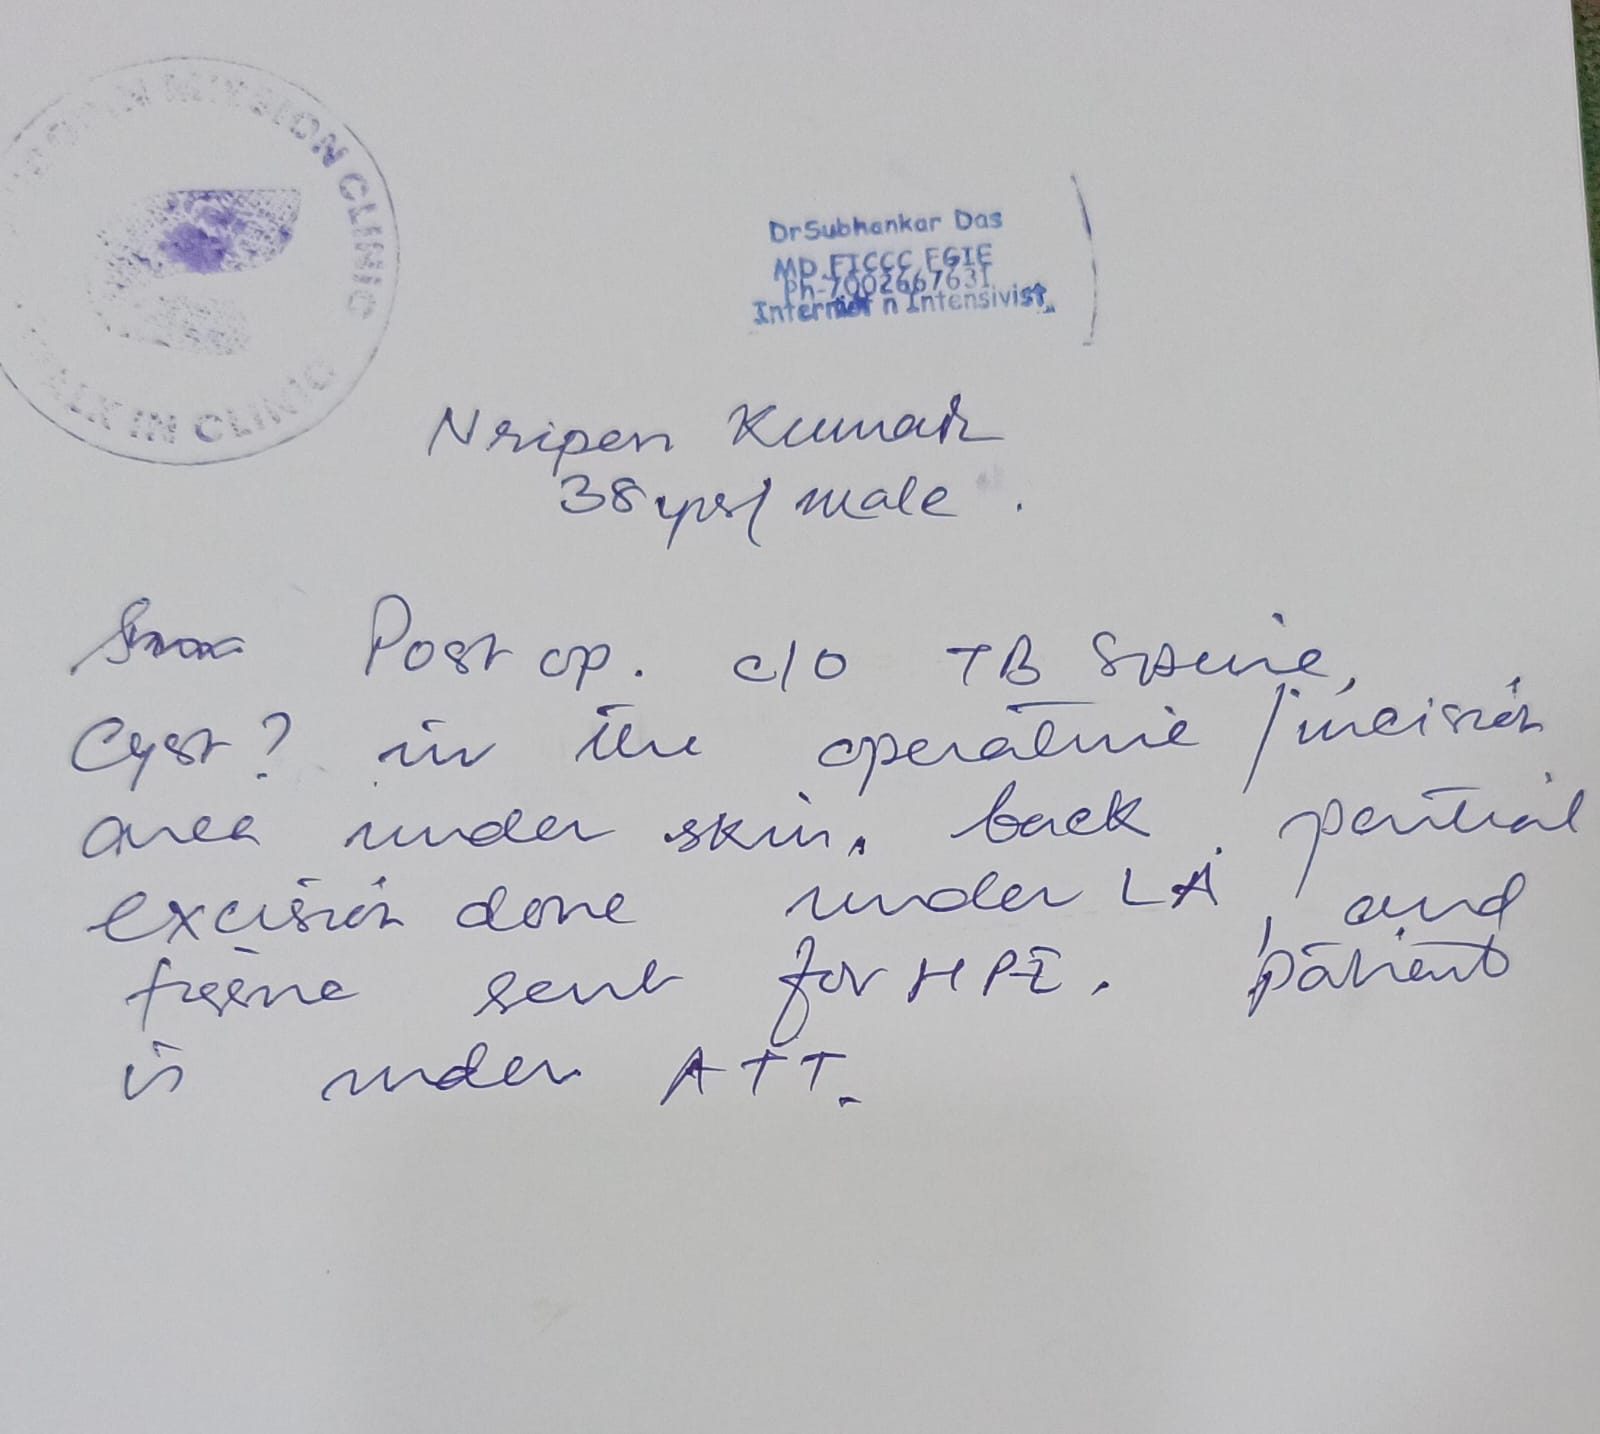 MISSION CLINIC
WALK IN CLINIC
Dr Subhankar Das
MD FICCC FGIE
Ph-7002667631
n Intensivist
Nripen Kumar
38 yrs/ male.
Post op. c/o TB Spine,
Cyst? in the operative / incision
area under skin. back. partial
excision done under LA, and
sent for HPE. patient
is under ATT.